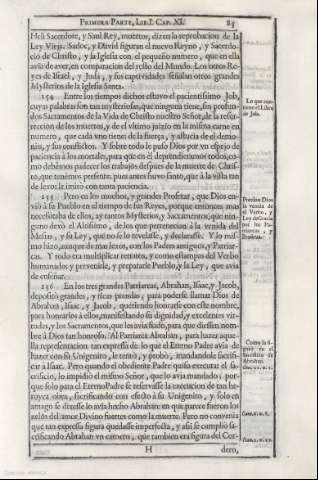 PRIMERA PARTE, LIB. I. CAP. XI. 85
Heli Sacerdote, y Saul Rey, muertos, dizen la reprobacion de la
Ley Vieja. Sadoc, y David figuran el nuevo Reyno, y Sacerdo-
cio de Christo, y la Iglesia con el pequeño numero, que en ella
avia de aver, en comparacion del resto del Mundo. Los otros Re-
yes de Israel, y Juda, y sus captividades señalan otros grandes
Mysterios de la Iglesia Santa.
154 Entre los tiempos dichos estuvo el pacientissimo Job,
cuyas palabras son tan mysteriosas, que ninguna tiene, sin profun-
dos Sacramentos de la Vida de Christo nuestro Señor, de la resur-
reccion de los muertos, y de el vltimo juizio en la misma carne en
numero, que cada vno tiene de la fuerça, y astucia de el demo-
nio, y sus conflictos. Y sobre todo le puso Dios por vn espejo de
paciencia à los mortales, para que en èl deprendieramos todos, co-
mo debemos padecer los trabajos despues de la muerte de Chris-
to, que tenemos presente, pues antes huvo santo, que à la vista tan
de lexos le imitò con tanta paciencia.
Lo que con-
tiene el Libro
de Job.
155 Pero en los muchos, y grandes Prophetas, que Dios em-
viò à su Pueblo en el tiempo de sus Reyes, porque entonces mas
necessitaba de ellos, ay tantos Mysterios, y Sacramentos, que nin-
guno dexò el Altissimo, de los que pertenecian à la venida del
Mesias, y su Ley, que no se lo revelasse, y declarasse. Y lo mis-
mo hizo, aunque de mas lexos, con los Padres antiguos, y Patriar-
cas. Y todo era multiplicar retratos, y como estampas del Verbo
humanado, y prevenirle, y prepararle Pueblo, y la Ley, que avia
de enseñar.
Previno Dios
la venida de
el Verbo, y
Ley de Gracia
por los Pa-
triarcas, y
Prophetas.
156 En los tres grandes Patriarcas, Abrahan, Isaac, y Jacob,
depositò grandes, y ricas prendas, para poderse llamar Dios de
Abrahan, Isaac, y Jacob, queriendo honrarse con este nombre,
para honrarlos à ellos, manifestando su dignidad, y excelentes vir-
tudes, y los Sacramentos, que los avia fiado, para que diessen nom-
bre à Dios tan honroso. Al Patriarca Abrahan, para hazer aque-
lla representacion tan expressa de lo que el Eterno Padre avia de
hazer con su Unigenito, le tentò, y probò, mandandole sacrifi-
car à Isaac. Pero quando el obediente Padre quiso executar el sa-
crificio, lo impidiò el mismo Señor, que lo avia mandado; por-
que solo para el Eterno Padre se reservasse la execucion de tan he-
royca obra, sacrificando con efecto à su Unigenito, y solo en
amago se diesse lo avia hecho Abrahan: en que parece fueron los
zelos del amor Divino fuertes como la muerte. Pero no convenia
que tan expressa figura quedasse imperfecta, y assi se cumpliò sa-
crificando Abrahan vn carnero, que tambien era figura del Cor-
Como se fi-
gurò en el
Sacrificio de
Abrahan.
H dero,